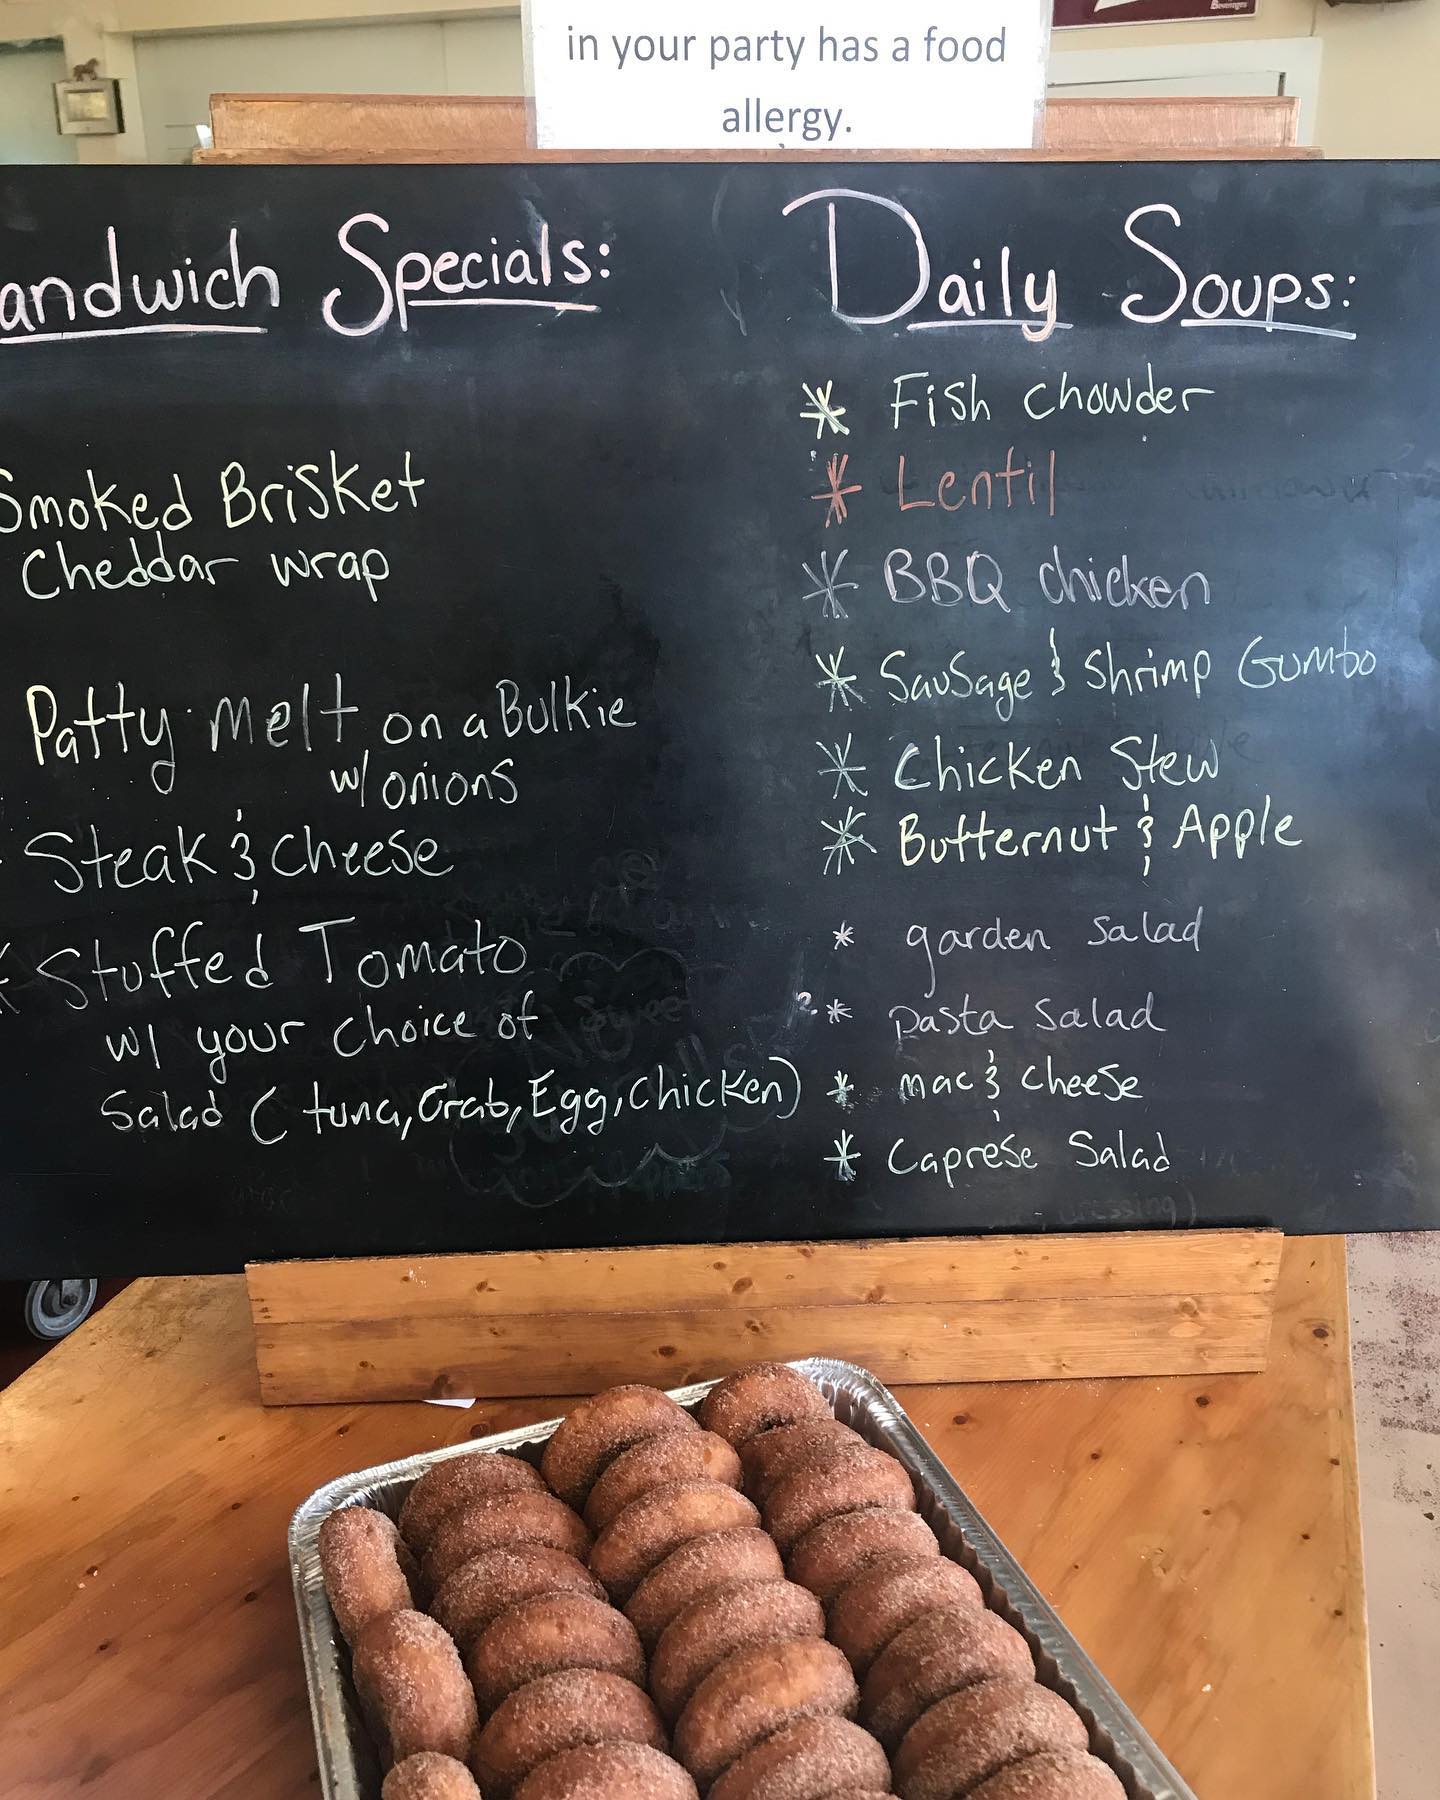 Beverages
in your party has a food
allergy.
andwich Specials:
Smoked Brisket
Cheddar wrap
Patty melt on a Bulkie
w/ onions
Steak & Cheese
* Stuffed Tomato
w/ your choice of
Salad ( tuna, Crab, Egg, Chicken)
Daily Soups:
* Fish Chowder
* Lentil
* BBQ chicken
* Sausage & Shrimp Gumbo
* Chicken Stew
* Butternut & Apple
* garden salad
* pasta salad
* mac & cheese
* Caprese Salad
dressing)